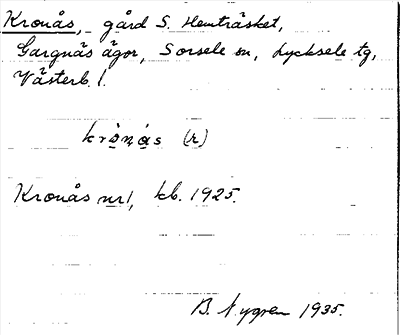 Kronås, gård S. Hemträsket,
Gargnäs ägor, Sorsele sn, Lycksele tg,
Västerb. l.
krònás (k)
Kronås nr 1, kb. 1925.
B. Nygren 1935.